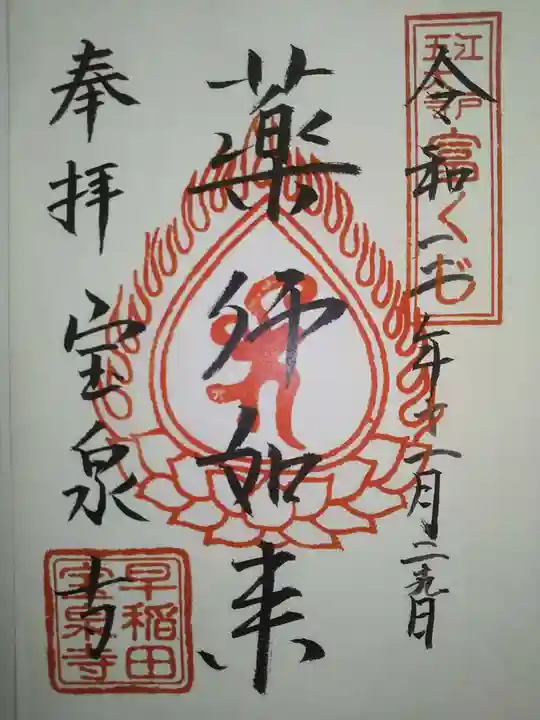 令和三年十一月二十九日
富くじ
薬師如来
奉拝 宝泉寺
早稲田
宝泉寺